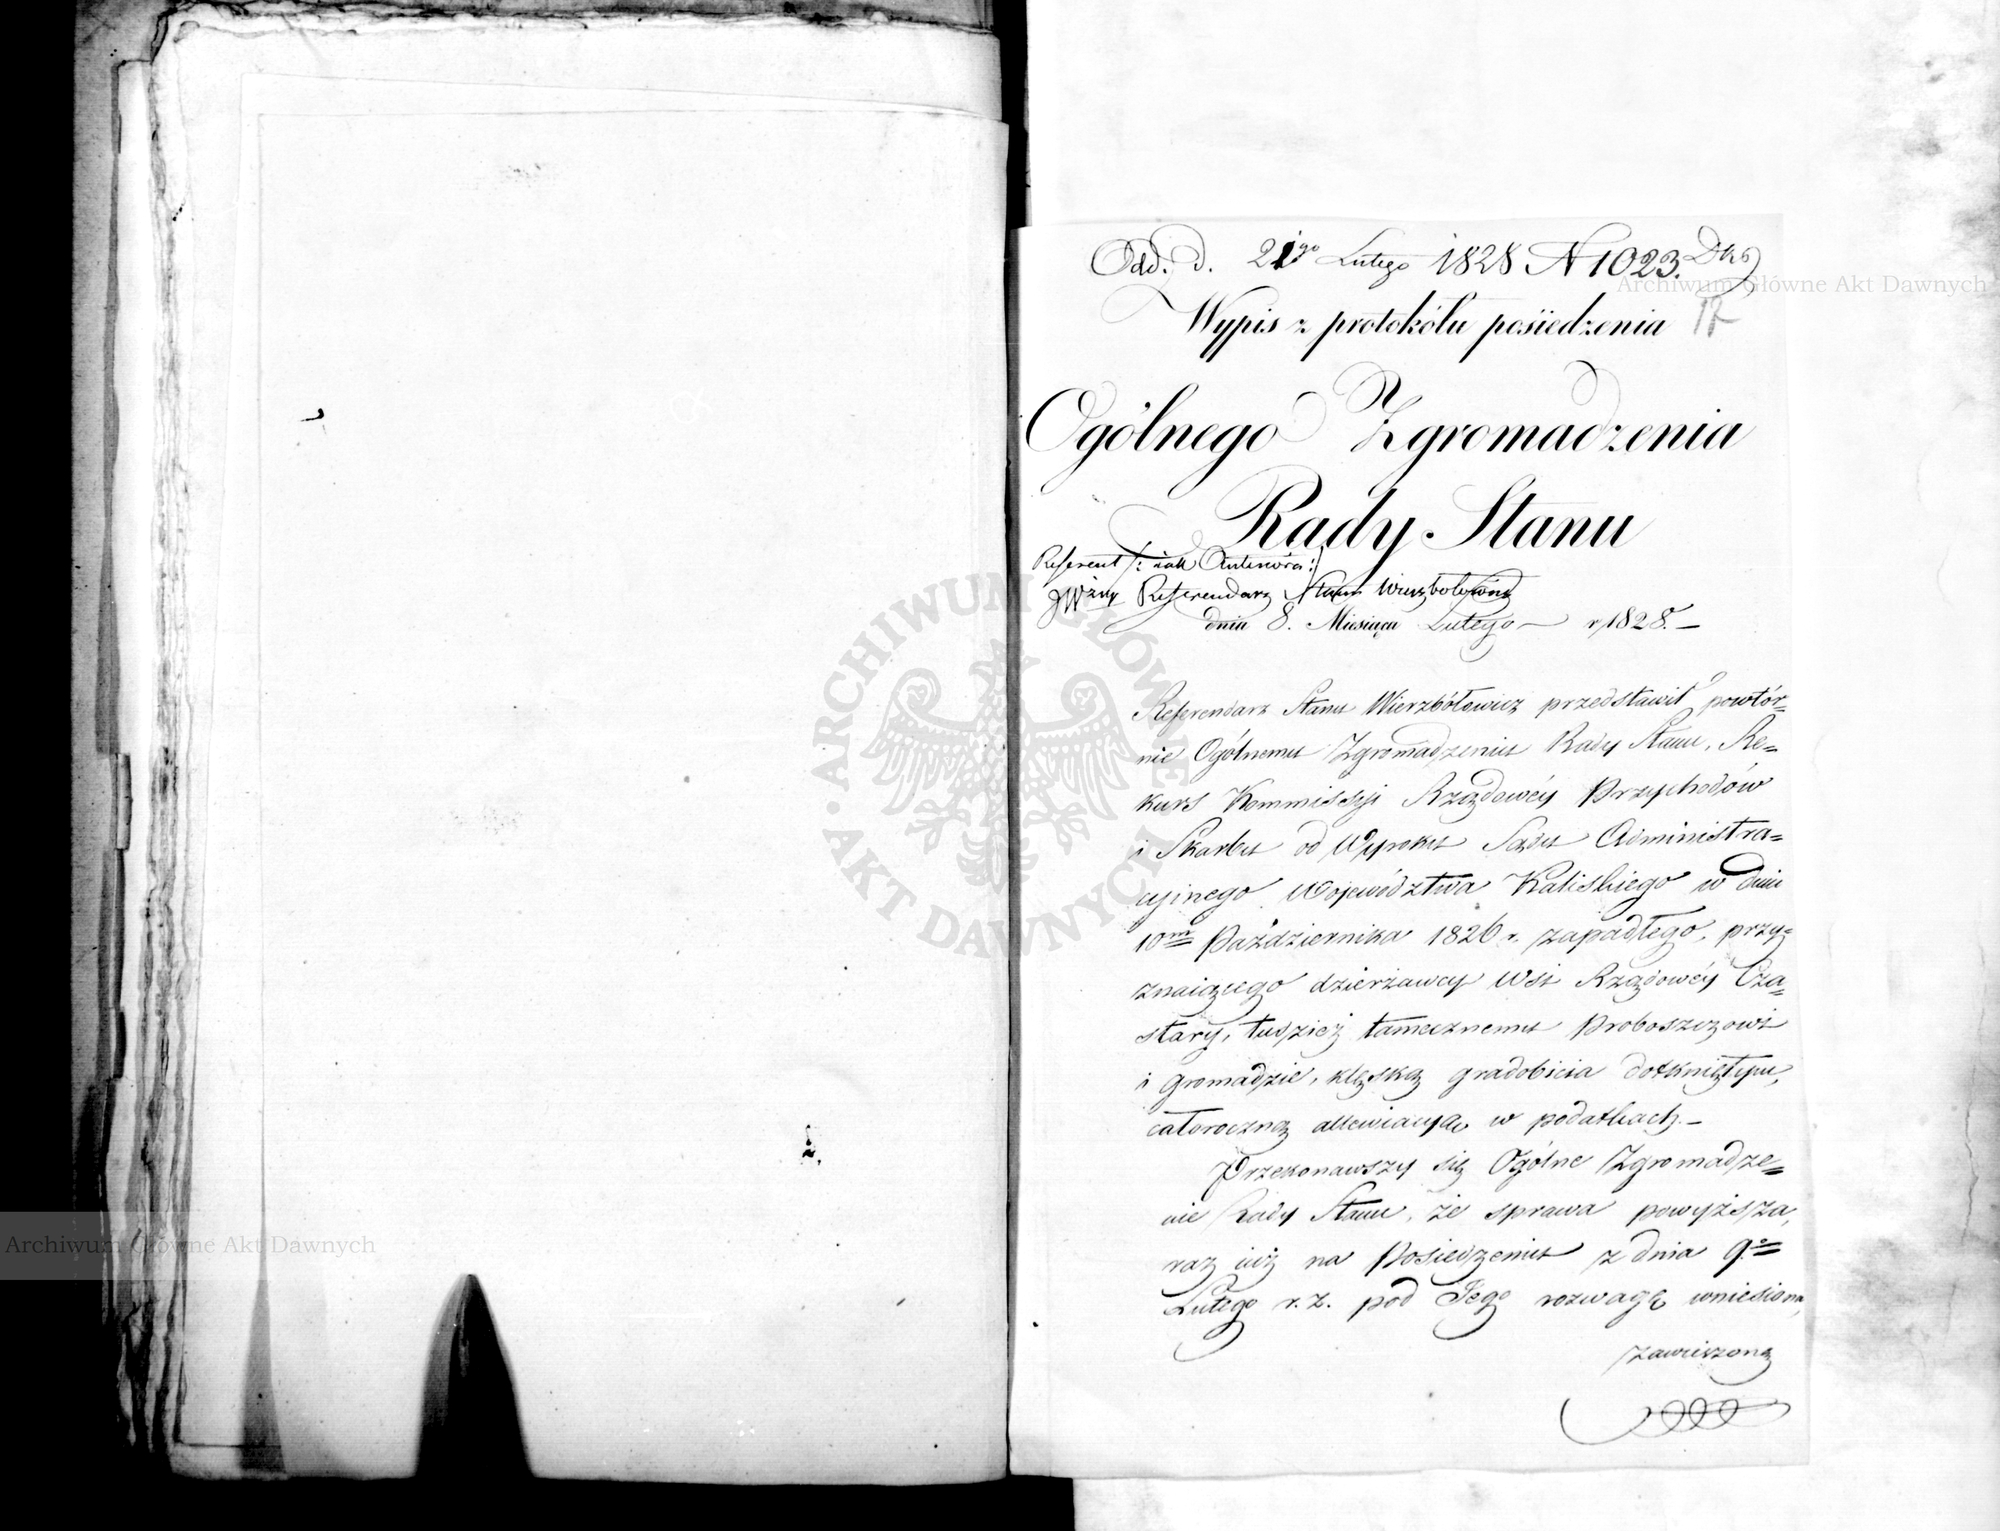 Odd. d. 21go Lutego 1828 N 1023.
Wypis z protokółu posiedzenia
Ogólnego Zgromadzenia
Rady Stanu
Referent
Referendarz Stanu
dnia 8. Miesiąca Lutego r. 1828. —
Referendarz Stanu Wierzbółowicz przedstawił powtór=
nie Ogólnemu Zgromadzeniu Rady Stanu, Re=
kurs Kommissyi Rządowéy Przychodów
i Skarbu od Wyroku Sądu Administra=
cyjnego Województwa Kaliskiego w dniu
10m Października 1826 r. zapadłego, przy=
znaiącego dzierżawcy Wsi Rządowéy Cza=
stary, tudzież tamecznemu Proboszczowi
i gromadzie, klęską gradobicia dotkniętym,
całoroczną allewiacyą w podatkach. —
Przekonawszy się Ogólne Zgromadze=
nie Rady Stanu, że sprawa powyższa,
raz iuż na Posiedzeniu z dnia 9o
Lutego r. z. pod Jego rozwagę wniesiona,
zawieszoną
Archiwum Główne Akt Dawnych
Archiwum Główne Akt Dawnych
ARCHIWUM GŁÓWNE AKT DAWNYCH